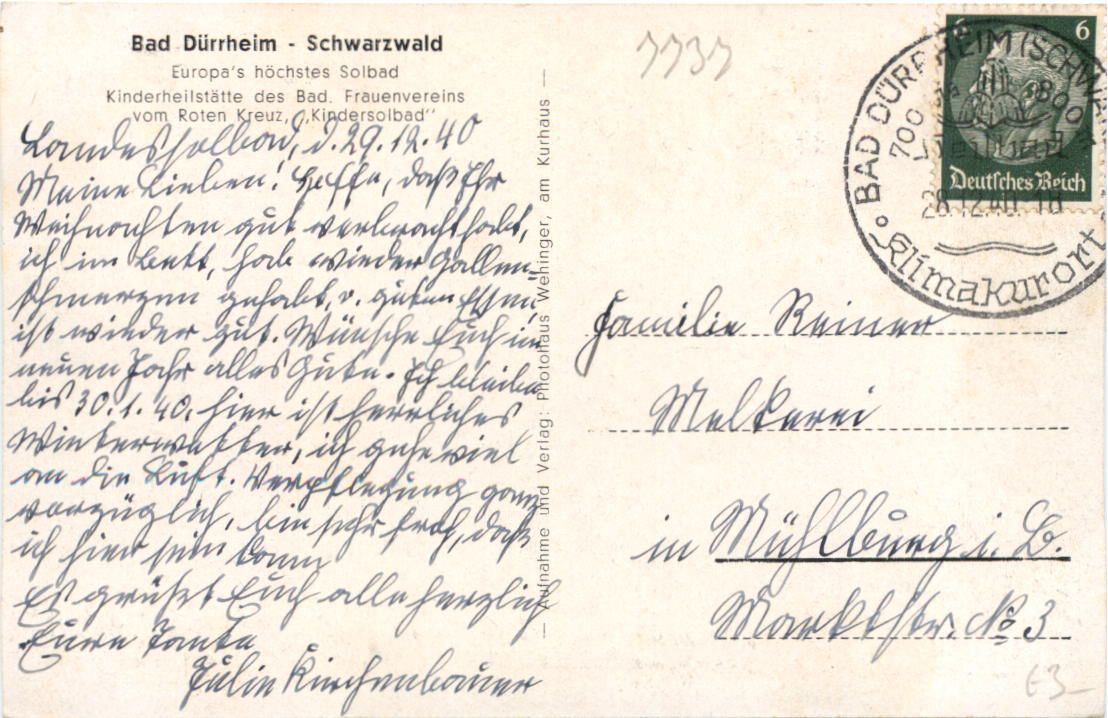 Bad Dürrheim - Schwarzwald
Europa's höchstes Solbad
Kinderheilstätte des Bad. Frauenvereins
vom Roten Kreuz, „Kindersolbad"
Landessolbad, d. 29.12.40
Meine Lieben! Hoffe, daß Ihr
Weihnachten gut verbracht habt,
ich im Bett, hab wieder Gallen-
schmerzen gehabt, v. guten Essen,
ist wieder gut. Wünsche Euch im
neuen Jahr alles Gute. Ich bleibe
bis 30.1.40. hier ist herrliches
Winterwetter, ich gehe viel
an die Luft. Verpflegung ganz
vorzüglich, bin sehr froh, daß
ich hier sein kann
Es grüßt Euch alle herzlich
Eure Tante
Julie Kirchenbauer
— Aufnahme und Verlag: Photohaus Wehinger, am Kurhaus —
7737
6
Deutsches Reich
BAD DÜRRHEIM (SCHWARZW
700 - 800 m
28.12.40. 18
Klimakurort
Familie Reiner
Melkerei
in Mühlburg i. B.
Marktstr. No 3
€3-